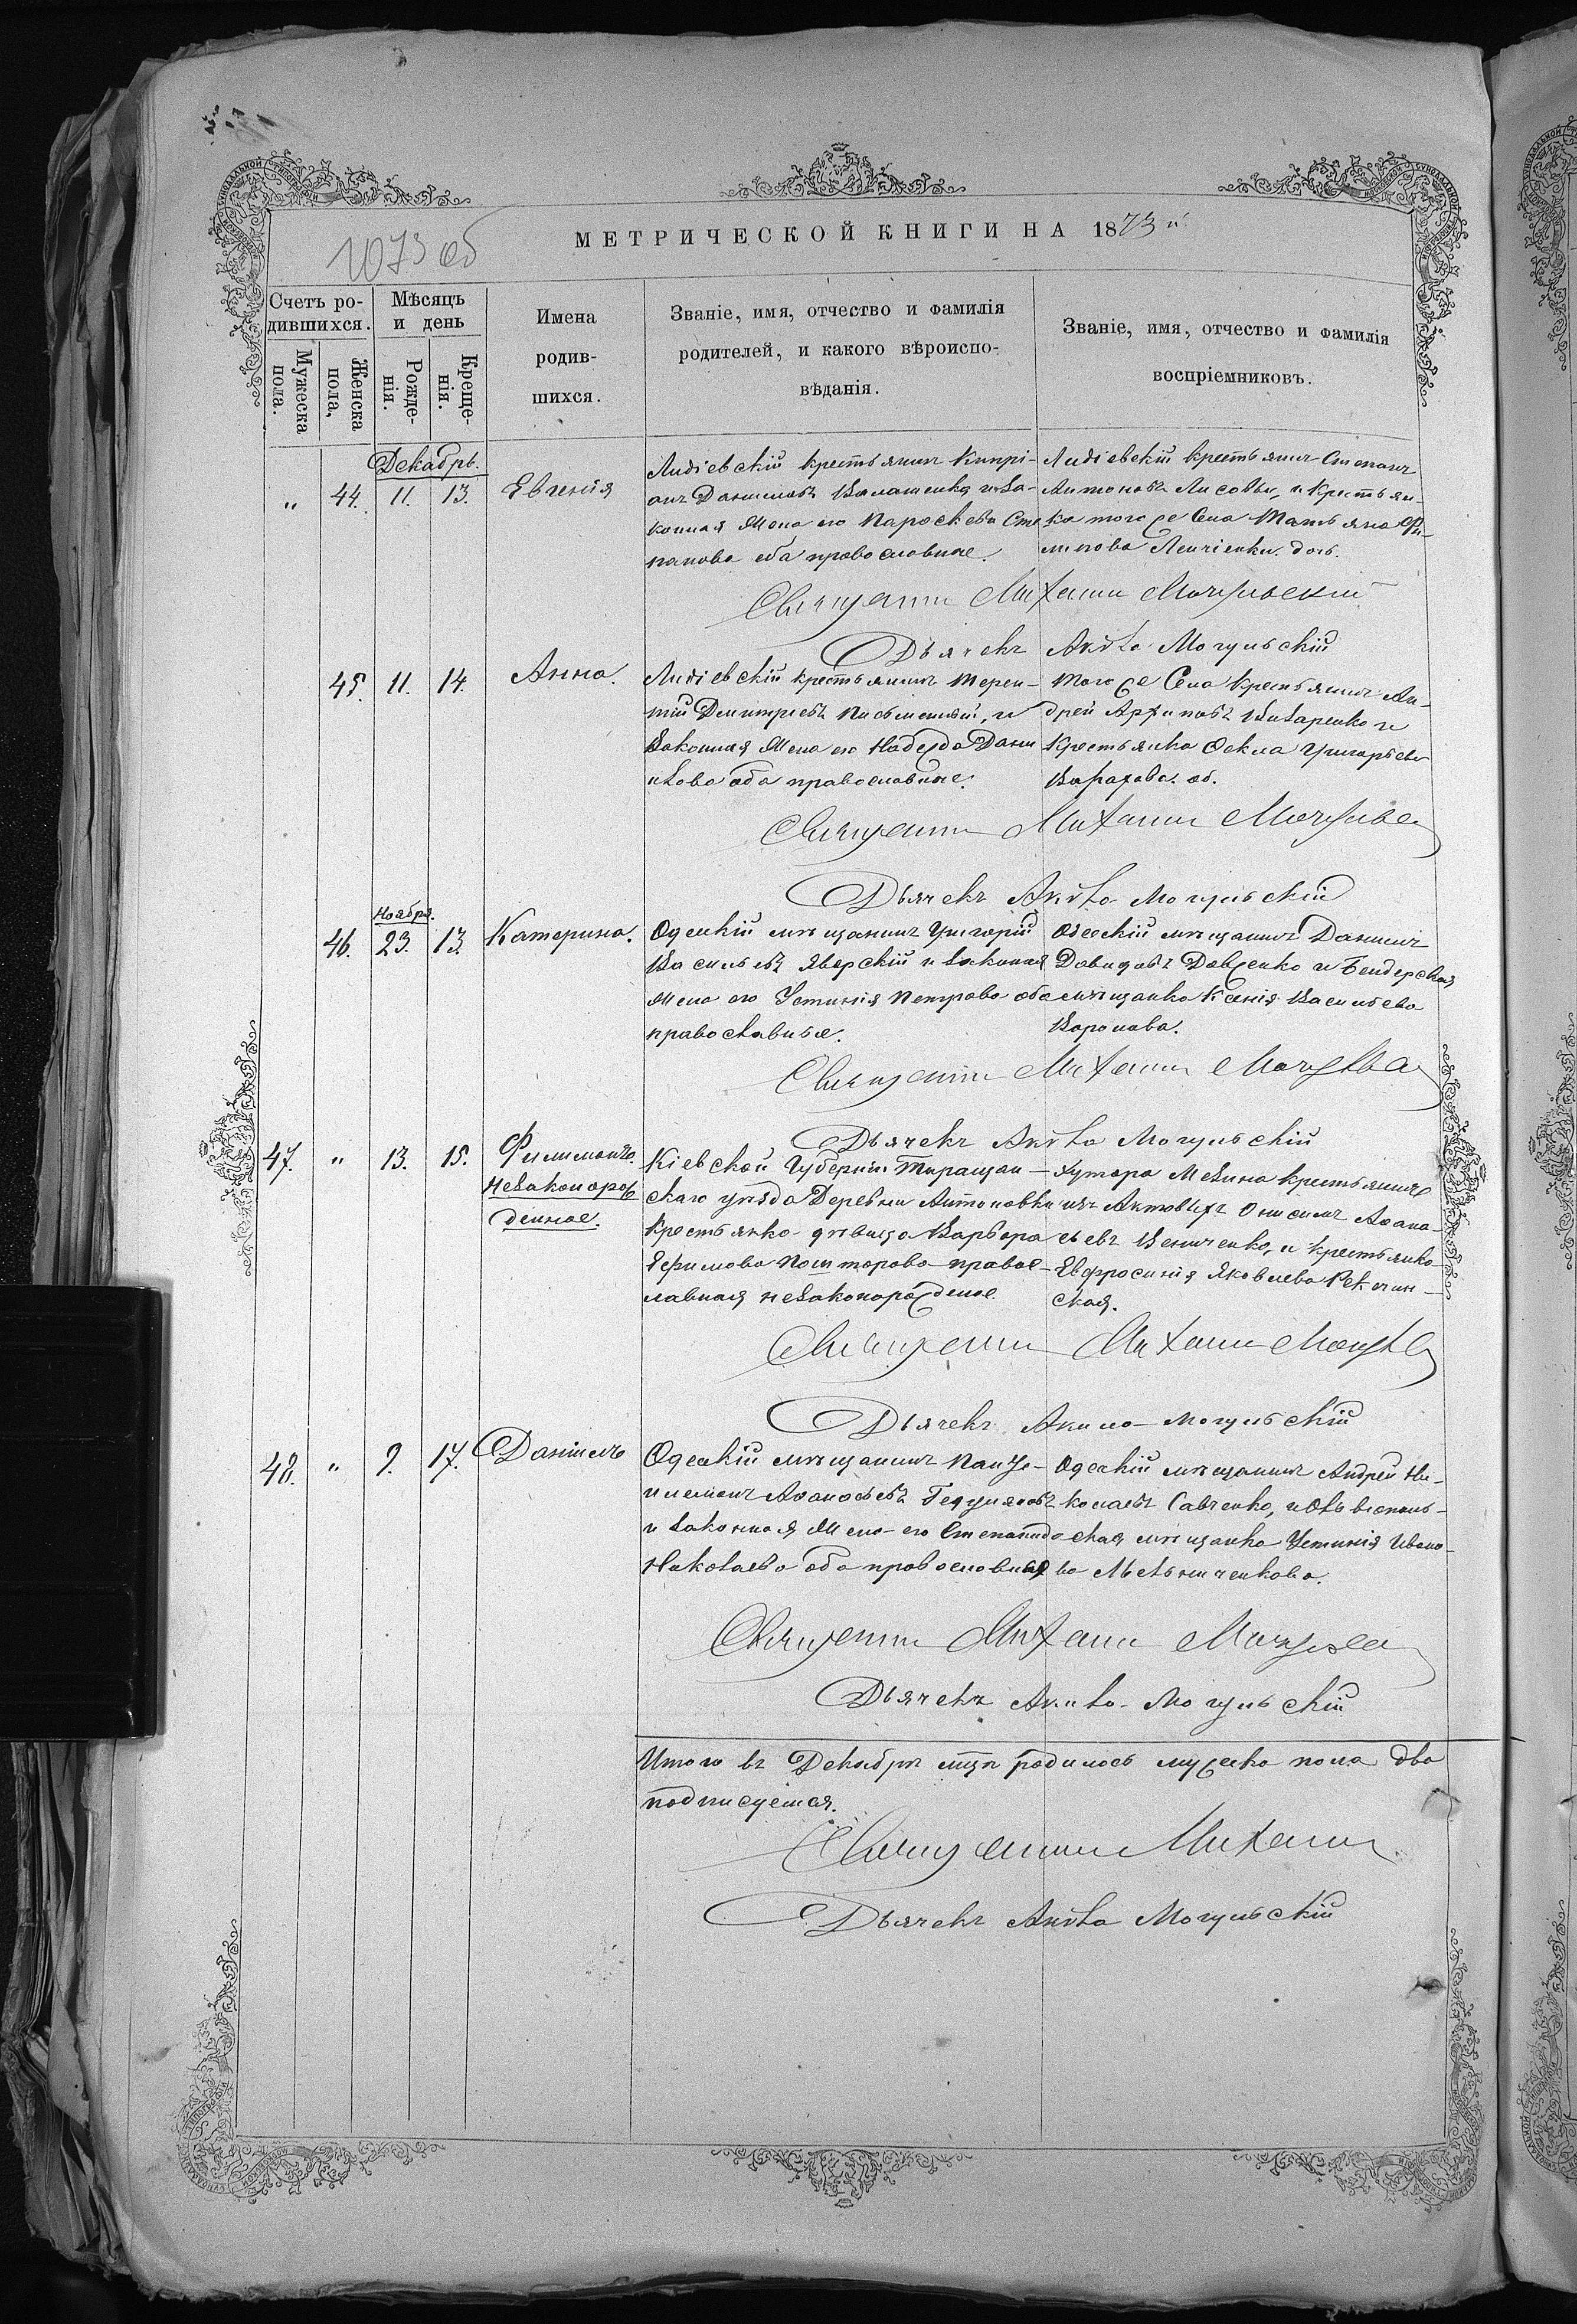 МЕТРИЧЕСКОЙ КНИГИ НА 1873 й
1073 об
Счетъ ро-
дившихся.
Мужеска
пола.
Женска
пола,
Мѣсяцъ
и день
Рожде-
нія.
Креще-
нія.
Имена
родив-
шихся.
Званіе, имя, отчество и фамилія
родителей, и какого вѣроиспо-
вѣданія.
Званіе, имя, отчество и фамилія
воспріемниковъ.
Декабрь.
" 44. 11. 13. Евгенія
Лидіевскій крестьянинъ Кипрі-
анъ Даниловъ и за-
конная жена его Параскева Сте
панова оба православные.
Лидіевскій крестьянинъ Степанъ
Антоновъ Лисовы, и крестьян-
ка того же села Татьяна Фи-
липова дочь.
Священникъ Михаилъ Могульскій
Дьячекъ Акила Могульскій
45. 11. 14. Анна.
Лидіевскій крестьянинъ Терен-
тій Димитріевъ Письменный, и
законная жена его Надежда Дани
илова оба православные.
того же села крестьянинъ Ан-
дрей Архиповъ и
крестьянка Фекла Григорьева
Священникъ Михаилъ
Дьячекъ Акила Могульскій
Ноября.
46. 23. 13. Катерина.
Одесскій мѣщанинъ Григорій
Васильевъ Яверскій и законная
жена его Устинія Петрова оба
православные.
Одесскій мѣщанинъ Даниилъ
Давидовъ Довженко и Бендерская
мѣщанка Ксенія Васильева
Воронова.
Священникъ Михаилъ
Дьячекъ Акила Могульскій
47. " 13. 15. Филимонъ.
незаконорож
денное.
Кіевской Губерніи Таращан-
скаго уѣзда Деревни Антоновки
крестьянка дѣвица Варвара
Ефимова православ-
лавная незаконорожденное
хутора Мезина крестьянинъ
изъ Актовыхъ Онисимъ Афана-
сьевъ Величенко, и крестьянка
Евфросинія Яковлева
ская.
Священникъ Михаилъ
Дьячекъ Акила Могульскій
48. " 9. 17. Даніилъ
Одесскій мѣщанинъ Панте-
илемонъ Афанасьевъ
и законная жена его Степанида
Николаева оба православные
Одесскій мѣщанинъ Андрей Ни-
колаевъ Савченко, и Овидіополь-
ская мѣщанка Устинія Ивано-
ва Мельниченкова.
Священникъ Михаилъ
Дьячекъ Акила Могульскій
Итого въ Декабрѣ мцѣ родилось мужеска пола два
подписуемся.
Священникъ Михаилъ
Дьячекъ Акила Могульскій